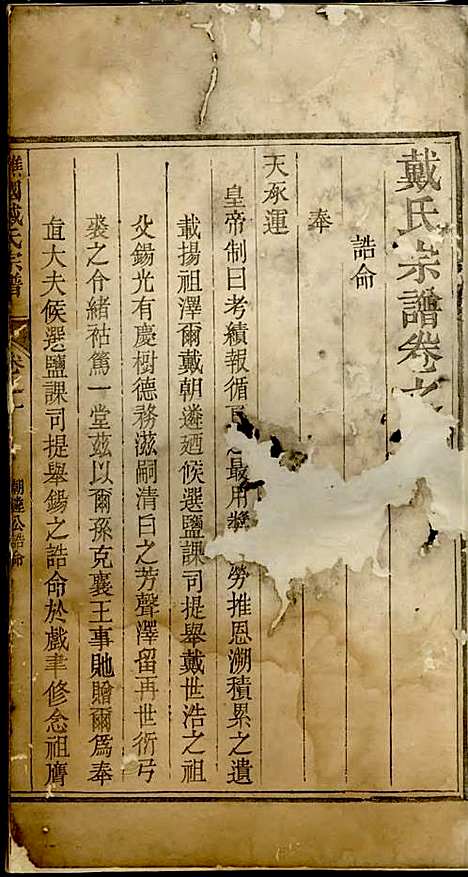 戴氏宗譜卷之
誥命
奉
天承運
皇帝制曰考績報循之最用獎勞推恩溯積累之遺
載揚祖澤爾戴朝遴廼候選鹽課司提舉戴世浩之祖
父錫光有慶樹德務滋嗣清白之芳聲澤留再世衍弓
裘之令緒祜篤一堂茲以爾孫克襄王事貤贈爾為奉
直大夫候選鹽課司提舉錫之誥命於戲聿修念祖膺
譙國戴氏宗譜 卷之 朝遴公誥命